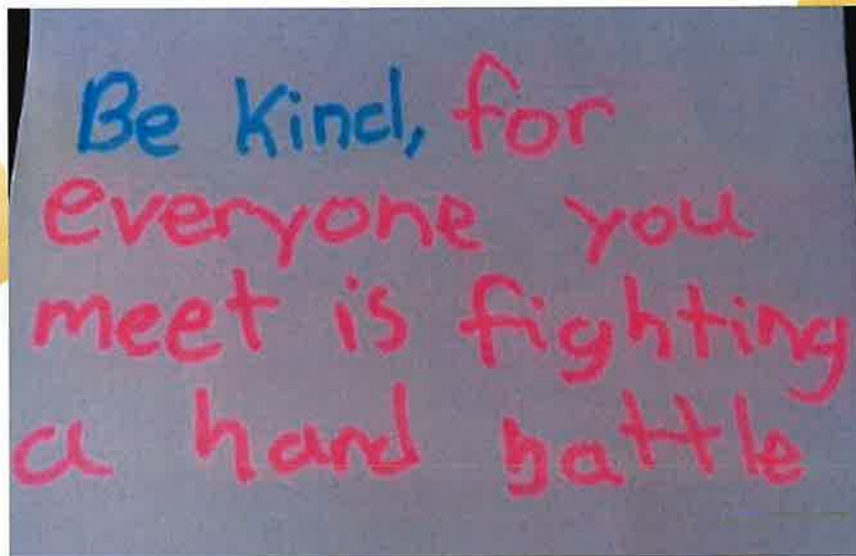 Be Kind, for
everyone you
meet is fighting
a hard battle